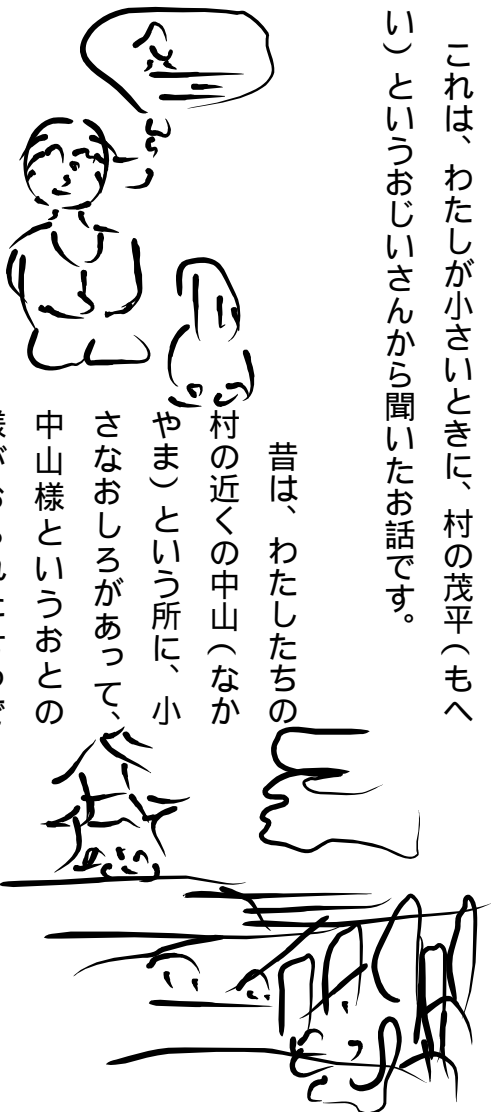 これは、わたしが小さいときに、村の茂平(もへ
い)というおじいさんから聞いたお話です。
昔は、わたしたちの
村の近くの中山(なか
やま)という所に、小
さなおしろがあって、
中山様というおとの